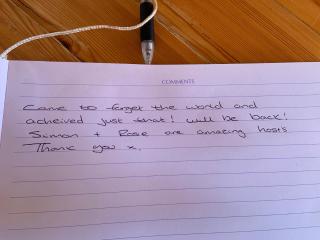 COMMENTS
Came to forget the world and
acheived just that! will be back!
Simon + Rosie are amazing hosts
Thank you x.